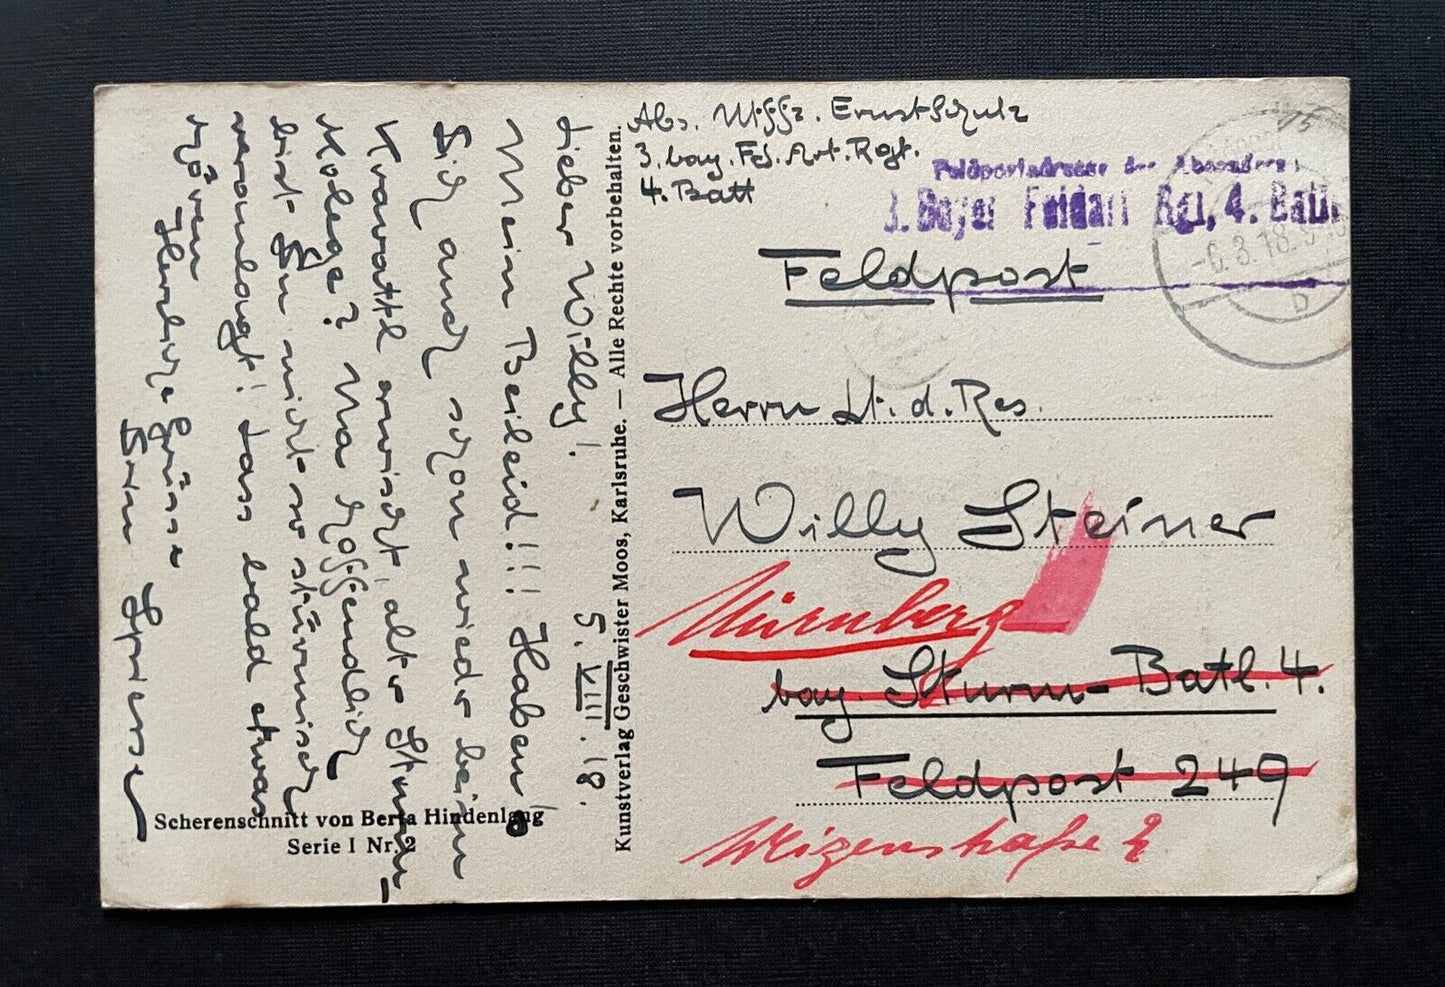 Abs. Uffz. Ernst Schulz
3. bay. Fd. Art. Regt.
4. Batt
Feldpostadresse des Absenders:
3. Bayer Feldart Rgt, 4. Batt.
-6.3.18. 9-10
b
Feldpost
Herrn Lt. d. Res.
Willy Steiner
Nürnberg
bay. Sturm-Batl. 4.
Feldpost 249
Weizenstraße 2
Kunstverlag Geschwister Moos, Karlsruhe. — Alle Rechte vorbehalten.
5. VIII. 18.
Lieber Willy!
Mein Beileid!!! Haben
Dich auch schon wieder beim
Kravattl erwischt, alter Sturm-
kolege? Na hoffendlich
bist Du nicht so stürmisch
veranlagt! Lass bald etwas
hören
Herzliche Grüsse
Dein
Scherenschnitt von Berta Hindenlang
Serie I Nr. 2